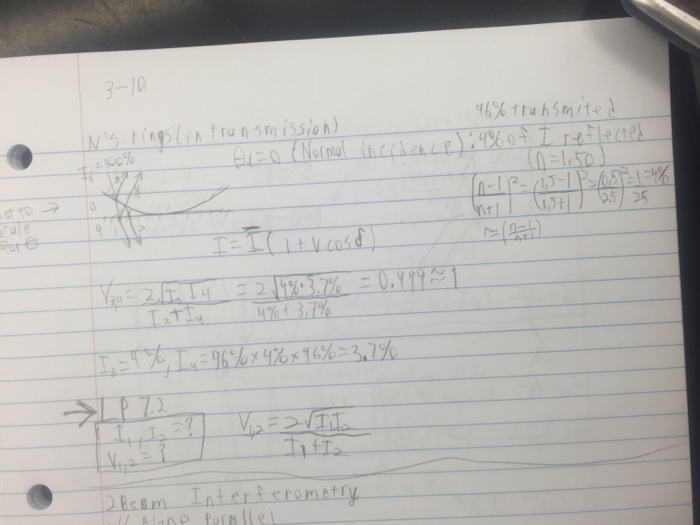 3-10
96% transmited
N's rings (in transmission)
θi=0 (Normal incidence): 4% of I reflected
(n=1.50)
Ii=100%
(n-1/n+1)² = (1.5-1/1.5+1)² = (0.5/2.5)² = 1/25 = 4%
≈ (n-1/n+1)
not to →
scale
I = I̅ (1+Vcosδ)
V3,4 = 2√I3 I4 / I3+I4 = 2√4%·3.7% / 4%+3.7% = 0.999 ≈ 1
I3=4%, I4=96%×4%×96%=3.7%
→ LP 7.2
I1, I2 = ?
V1,2 = ?
V1,2 = 2√I1I2 / I1+I2
2 Beam Interferometry
// plane parallel